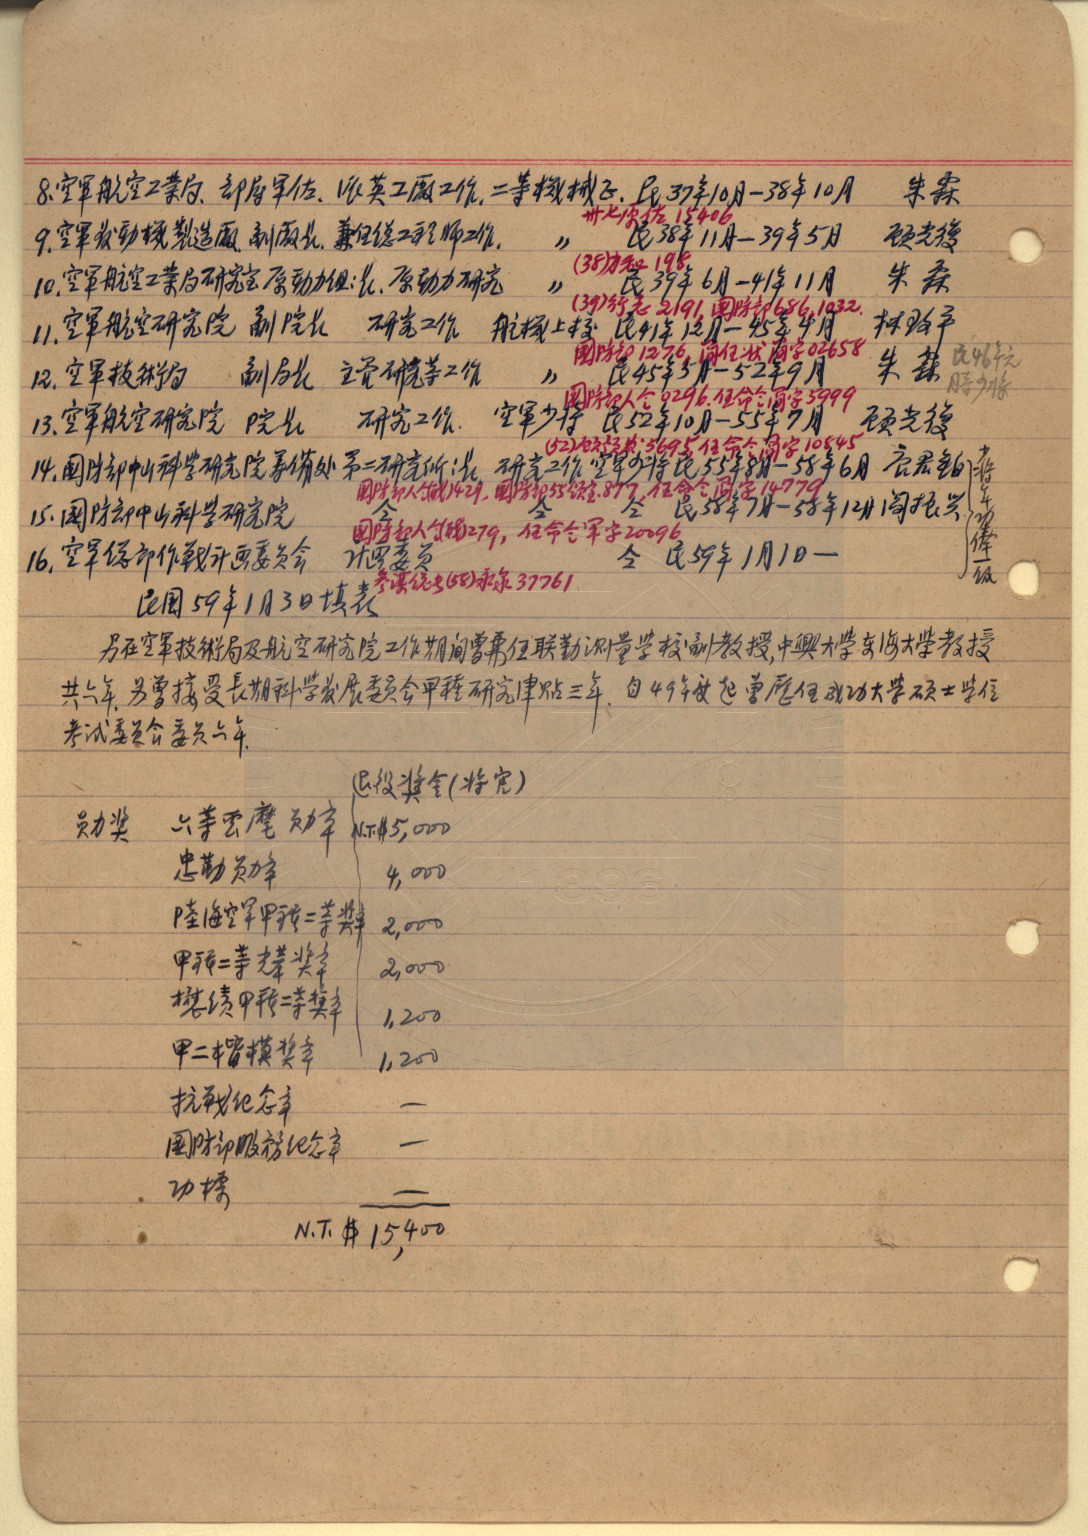 8. 空軍航空工業局、部屬軍佐、派英工廠工作、二等機械正、民37年10月—38年10月 朱霖
卅七京佐 15406
9. 空軍發動機製造廠 副廠長 兼任總工程師工作. 〃 民38年11月—39年5月 顧光復
(38) 198
10. 空軍航空工業局研究室原動力組組長. 原動力研究 〃 民39年6月—41年11月 朱霖
(39)行志2191, 國防部686, 1032.
11. 空軍航空研究院 副院長 研究工作 航械上校 民41年12月—45年4月 林致平
國防部1276, 簡任狀簡字02658
12. 空軍技術局 副局長 主管研究等工作 〃 民45年5月—52年9月 朱霖 民46年元月晉少將
國防部人令0296. 任命令簡字5999
13. 空軍航空研究院 院長 研究工作. 空軍少將 民52年10月—55年7月 顧光復
(52) 5695 任命令簡字10845
14. 國防部中山科學研究院籌備處 第二研究所所長 研究工作 空軍少將 民55年8月—58年6月
國防部人令 1429, 國防部55 877, 任命令簡字14779
15. 國防部中山科學研究院 仝 仝 仝 民58年7月—58年12月 閻振興
國防部人令 279, 任命令軍字20096
16. 空軍總部作戰計画委員会 計画委員 仝 民59年1月1日—
(58) 37761
民国59年1月3日填表
另在空軍技術局及航空研究院工作期间曾兼任联勤測量学校副教授, 中興大学東海大学教授
共六年. 另曾接受長期科学发展委員会甲種研究津貼三年. 自49年度起曾歷任成功大学碩士学位
考試委員会委員六年.
退役奨金(将官)
勛奨 六等雲麾勛章 N.T.$5,000
忠勤勛章 4,000
陸海空軍甲種二等奨章 2,000
甲種二等光華奨章 2,000
懋績甲種二等奨章 1,200
甲二楷模奨章 1,200
抗戰纪念章 —
國防部服務纪念章 —
功標 —
N.T.$15,400